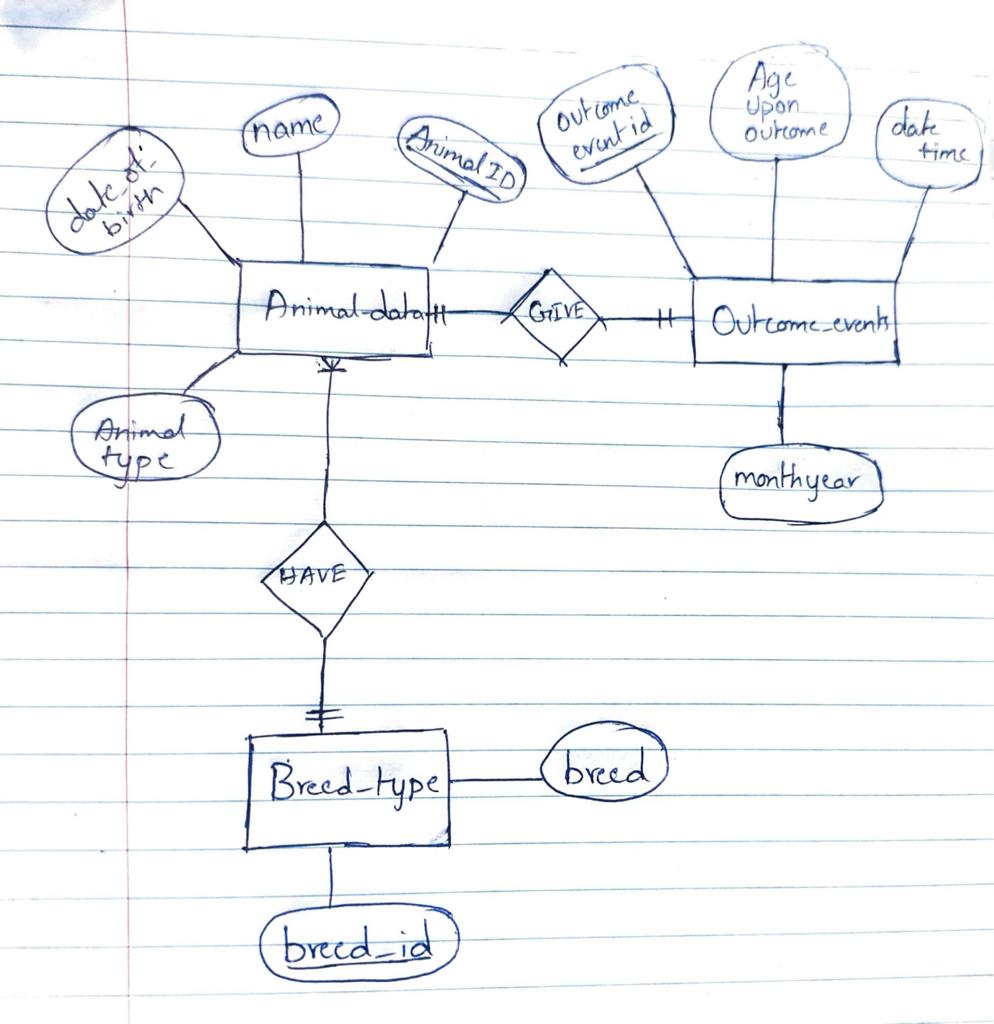 name
Animal ID
date_of_
birth
outcome
event id
Age
upon
outcome
date
time
Animal_data
GIVE
Outcome_events
Animal
type
monthyear
HAVE
Breed_type
breed
breed_id